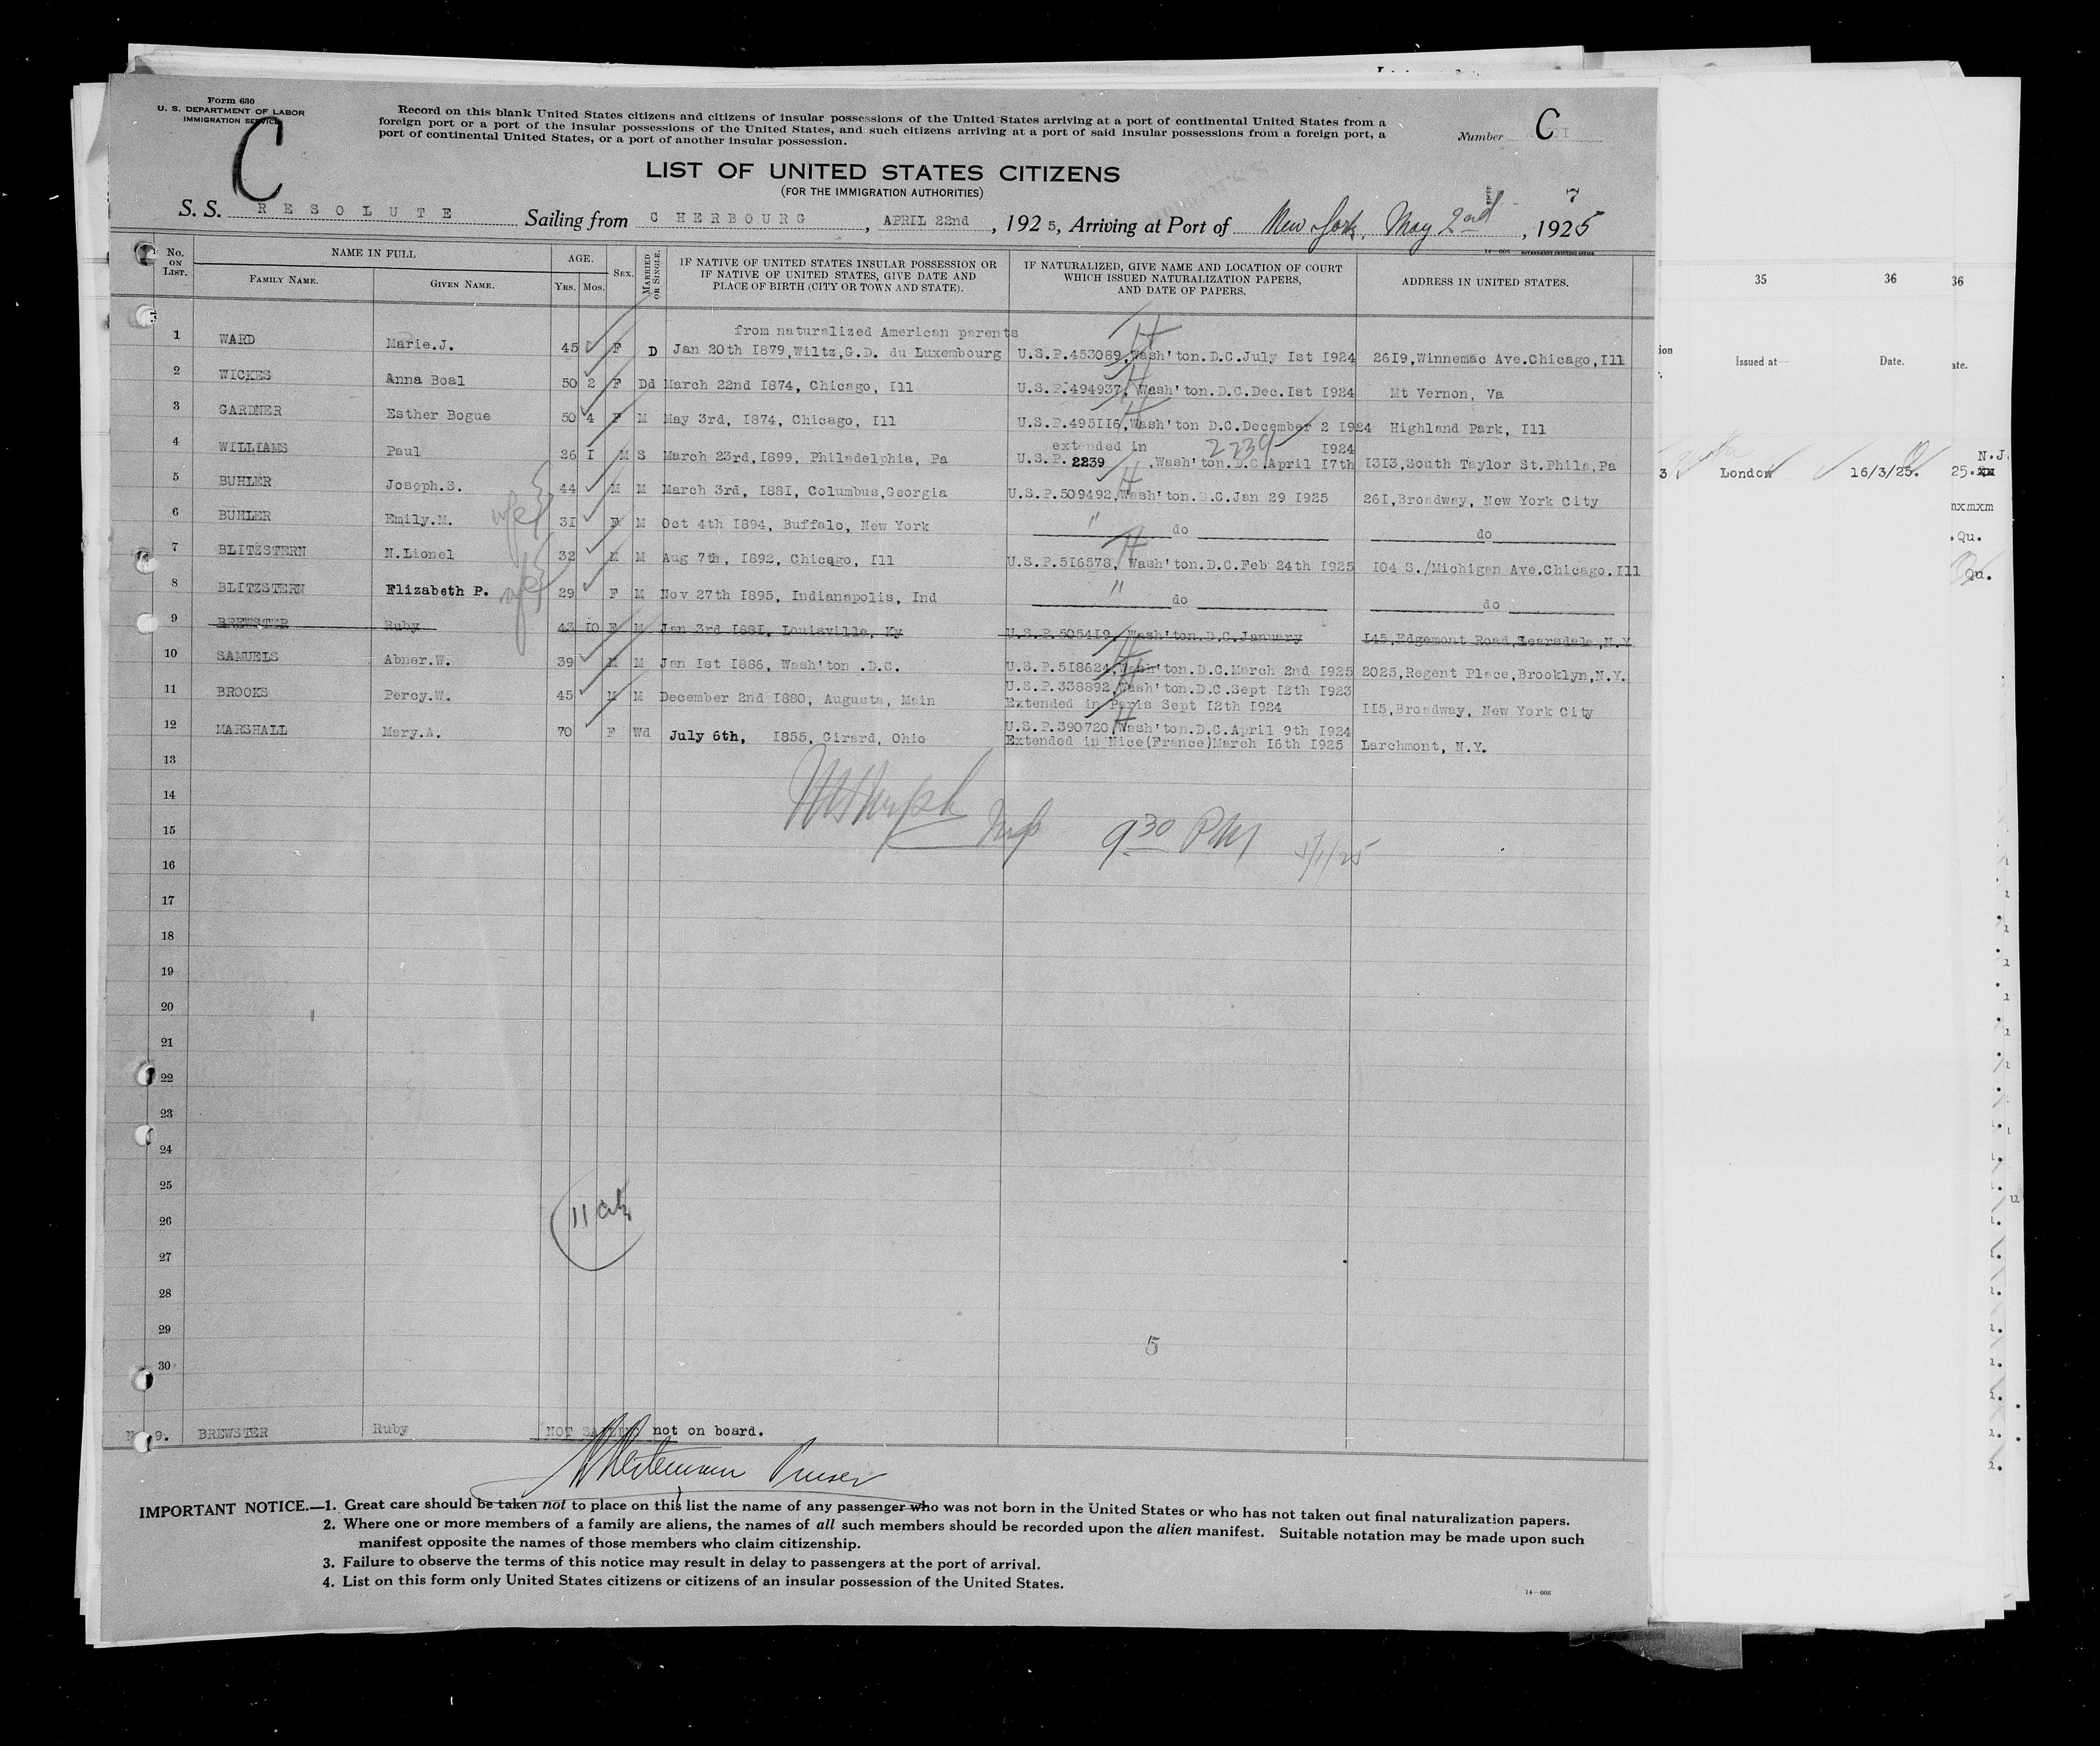 Form 630
U. S. DEPARTMENT OF LABOR
IMMIGRATION SERVICE
C
Record on this blank United States citizens and citizens of insular possessions of the United States arriving at a port of continental United States from a
foreign port or a port of the insular possessions of the United States, and such citizens arriving at a port of said insular possessions from a foreign port, a
port of continental United States, or a port of another insular possession.
Number C
LIST OF UNITED STATES CITIZENS
(FOR THE IMMIGRATION AUTHORITIES)
S. S. RESOLUTE Sailing from CHERBOURG, APRIL 22nd, 1925, Arriving at Port of New York, May 2nd, 1925
14—608 GOVERNMENT PRINTING OFFICE
No. ON LIST. NAME IN FULL FAMILY NAME. GIVEN NAME. AGE. YRS. MOS. SEX. MARRIED OR SINGLE. IF NATIVE OF UNITED STATES INSULAR POSSESSION OR IF NATIVE OF UNITED STATES, GIVE DATE AND PLACE OF BIRTH (CITY OR TOWN AND STATE). IF NATURALIZED, GIVE NAME AND LOCATION OF COURT WHICH ISSUED NATURALIZATION PAPERS, AND DATE OF PAPERS. ADDRESS IN UNITED STATES.
from naturalized American parents
1 WARD Marie.J. 45 F D Jan 20th 1879,Wiltz,G.D. du Luxembourg U.S.P.453089,Wash'ton.D.C.July 1st 1924 2619,Winnemac Ave.Chicago,Ill
2 WICKES Anna Boal 50 2 F Dd March 22nd 1874, Chicago, Ill U.S.P.494937, Wash'ton.D.C.Dec.1st 1924 Mt Vernon, Va
3 GARDNER Esther Bogue 50 4 F M May 3rd, 1874, Chicago, Ill U.S.P.495116,Wash'ton D.C.December 2 1924 Highland Park, Ill
extended in 2239 1924
4 WILLIAMS Paul 26 1 M S March 23rd,1899, Philadelphia, Pa U.S.P. 2239 ,Wash'ton.D.C.April 17th 1313,South Taylor St.Phila,Pa
5 BUHLER Joseph.S. 44 M M March 3rd, 1881, Columbus,Georgia U.S.P.509492,Wash'ton.D.C.Jan 29 1925 261,Broadway, New York City
6 BUHLER Emily.M. wife 31 F M Oct 4th 1894, Buffalo, New York " do do
7 BLITZSTERN N.Lionel 32 M M Aug 7th, 1892, Chicago, Ill U.S.P.516578, Wash'ton.D.C.Feb 24th 1925 104 S./Michigan Ave.Chicago.Ill
8 BLITZSTERN Elizabeth P. wife 29 F M Nov 27th 1895, Indianapolis, Ind " do do
9 BREWSTER Ruby 43 10 F M Jan 3rd 1881, Louisville, Ky U.S.P.505419, Wash'ton.D.C.January 145,Edgemont Road,Scarsdale,N.Y
10 SAMUELS Abner.W. 39 M M Jan 1st 1886, Wash'ton .D.C. U.S.P.518624,Wash'ton.D.C.March 2nd 1925 2025,Regent Place,Brooklyn,N.Y.
11 BROOKS Percy.W. 45 M M December 2nd 1880, Augusta, Main U.S.P.338892,Wash'ton.D.C.Sept 12th 1923
Extended in Paris Sept 12th 1924 115,Broadway, New York City
12 MARSHALL Mary.A. 70 F Wd July 6th, 1855, Girard, Ohio U.S.P.390720,Wash'ton.D.C.April 9th 1924
Extended in Nice(France)March 16th 1925 Larchmont, N.Y.
13
14
15 9 30 PM 5/1/25
16
17
18
19
20
21
22
23
24
25
26 11
27
28
29 5
30
9. BREWSTER Ruby NOT SAILING not on board.
Purser
IMPORTANT NOTICE.—1. Great care should be taken not to place on this list the name of any passenger who was not born in the United States or who has not taken out final naturalization papers.
2. Where one or more members of a family are aliens, the names of all such members should be recorded upon the alien manifest. Suitable notation may be made upon such
manifest opposite the names of those members who claim citizenship.
3. Failure to observe the terms of this notice may result in delay to passengers at the port of arrival.
4. List on this form only United States citizens or citizens of an insular possession of the United States.
14—608
35 36 36
Issued at Date. ate.
N.J.
3 London 16/3/25. 25.
.Qu.
Qu.